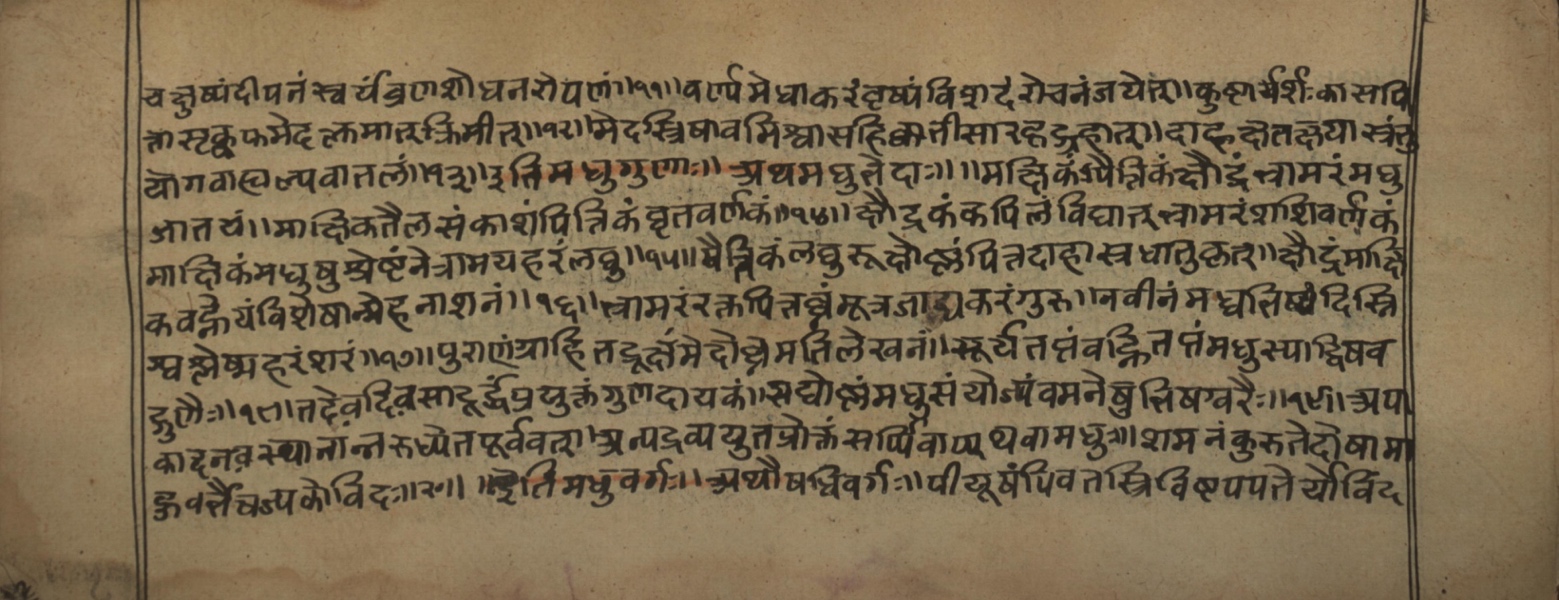 चक्षुष्यंदीपनंस्वर्यंव्रणशोधनरोपणं॥११॥वर्ण्यंमेधाकरंवृष्यंविशदंरोचनंजयेत्॥कुष्टार्यर्शःकासपि
त्तासृक्कफमेदक्लमातृक्रिमीत्॥१२॥मेदस्त्रिषावमिश्वासहिक्कातीसारहृद्ग्रहात्॥दाहक्षतक्षयास्त्रंतु
योगवाह्यल्पवातलं॥१३॥इतिमधुगुणाः॥अथमधुभेदाः॥॥मक्षिकंपैत्तिकंक्षौद्रंभ्रामरंमधु
जातयं॥माक्षिकतैलसंकाशंपित्तिकंघृतवर्णकं॥१४॥क्षौद्रकंकपिलंविद्यात्भ्रामरंशशिवर्णकं
माक्षिकंमधुषुश्रेष्टंनेत्रामयहरंलघु॥१५॥पैत्तिकंलघुरूक्षोष्णंपित्तदाहास्रधातुकृत्॥क्षौद्रंमाक्षि
कवद्ज्ञेयंविशेषान्मेहनाशनं॥१६॥भ्रामरंरक्तपित्तघ्नंमूत्रजाड्यकरंगुरु॥नवीनंमध्वभिष्यंदिस्नि
ग्धश्लेष्महरंशरं॥१७॥पुराणंग्राहितद्रूक्षंमेदोघ्नमतिलेखनं॥सूर्यतप्तंवह्नितप्तंमधुस्याद्विषव
द्गुणैः॥१८॥तदेवदिवसादूर्द्धंप्रयुक्तंगुणदायकं॥सद्योष्णंमधुसंयोज्यंवमनेषुभिषग्वरैः॥१९॥अपा
कादनवस्थानांन्नरुध्येतपूर्ववत्॥अन्यद्रव्ययुतप्रोक्तंसर्प्पिवाप्यथवामधुः॥शमनंकुरुतेदोषामा
इतिमधुवर्गः॥अथौषधिवर्गः॥पीयूषंपिवतस्त्रिविष्टपपतेर्येविंद